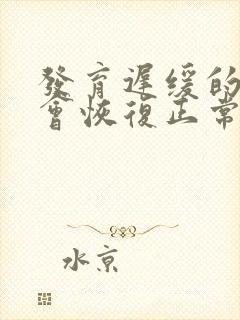 發育遲緩的
會恢復正常
水京